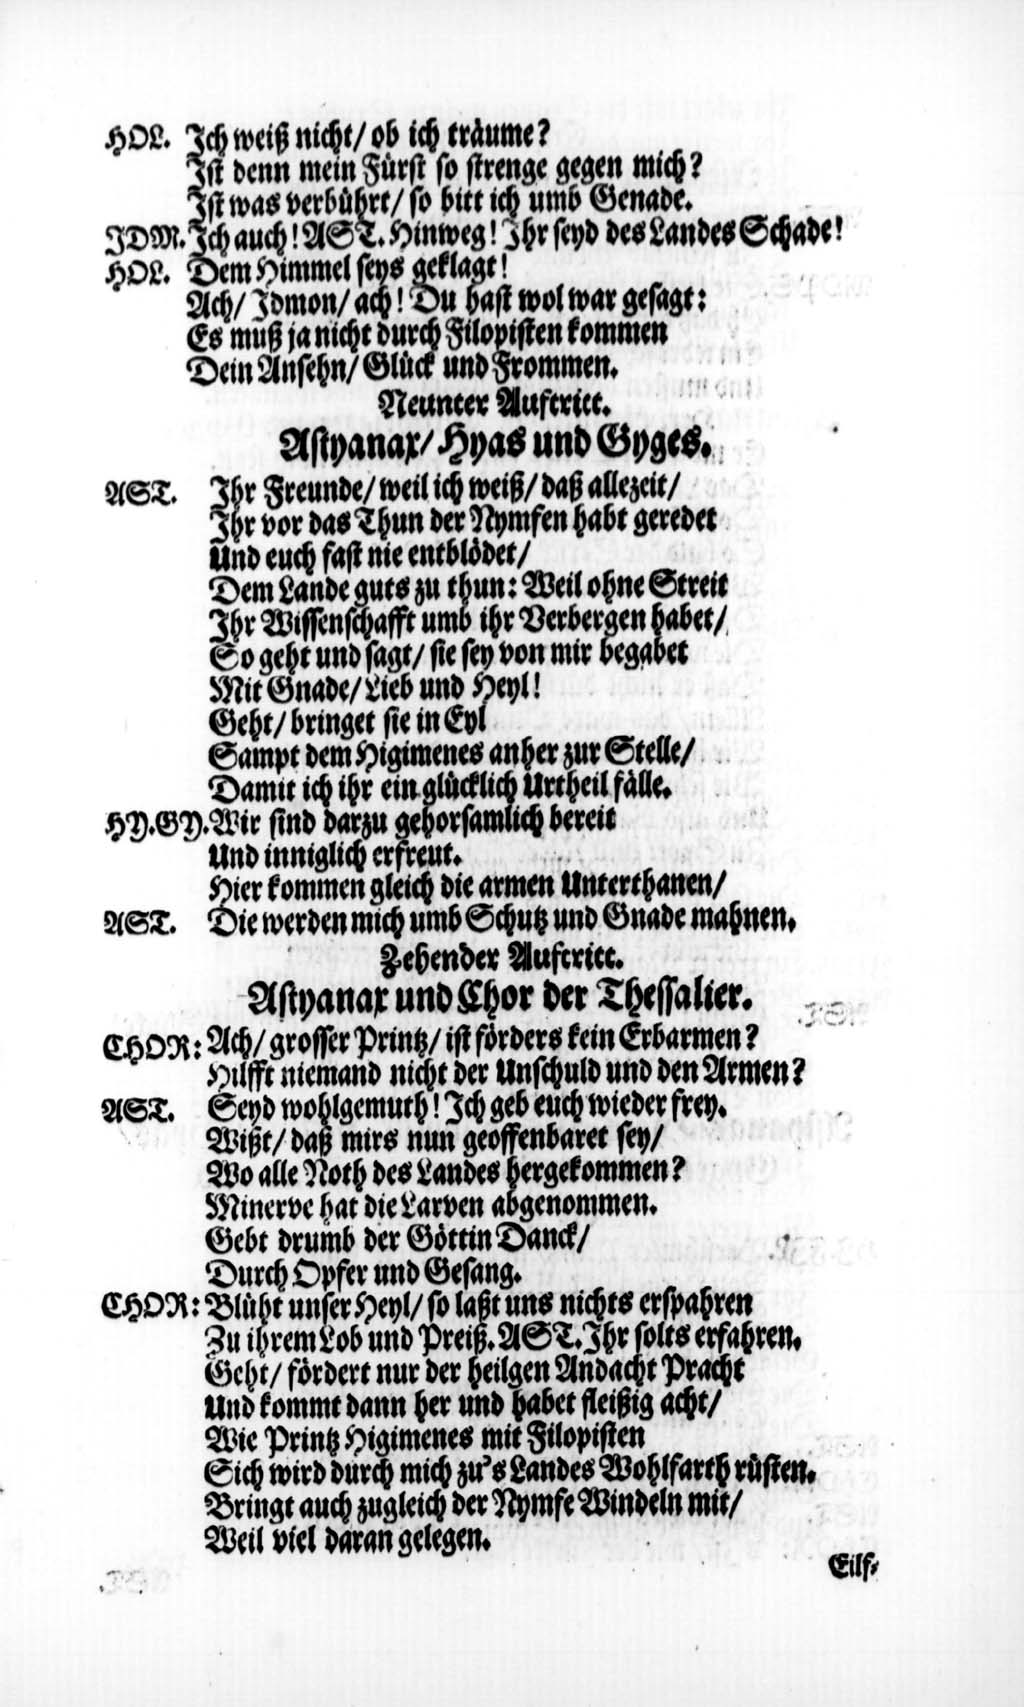 HOL. Ich weiß nicht/ ob ich träume?
Ist denn mein Fürst so strenge gegen mich?
Ist was verbührt/ so bitt ich umb Genade.
IDM. Ich auch! AST. Hinweg! Ihr seyd des Landes Schade!
HOL. Dem Himmel seys geklagt!
Ach/ Idmon/ ach! Du hast wol war gesagt:
Es muß ja nicht durch Filopisten kommen
Dein Ansehn/ Glück und Frommen.
Neunter Auftritt.
Astyanax/ Hyas und Gyges.
AST. Ihr Freunde/ weil ich weiß/ daß allezeit/
Ihr vor das Thun der Nymfen habt geredet
Und euch fast nie entblödet/
Dem Lande guts zu thun: Weil ohne Streit
Ihr Wissenschafft umb ihr Verbergen habet/
So geht und sagt/ sie sey von mir begabet
Mit Gnade/ Lieb und Heyl!
Geht/ bringet sie in Eyl
Sampt dem Higimenes anher zur Stelle/
Damit ich ihr ein glücklich Urtheil fälle.
HY. GY. Wir sind darzu gehorsamlich bereit
Und inniglich erfreut.
Hier kommen gleich die armen Unterthanen/
AST. Die werden mich umb Schutz und Gnade mahnen.
Zehender Auftritt.
Astyanax und Chor der Thessalier.
CHOR: Ach/ grosser Printz/ ist förders kein Erbarmen?
Hilfft niemand nicht der Unschuld und den Armen?
AST. Seyd wohlgemuth! Ich geb euch wieder frey.
Wißt/ daß mirs nun geoffenbaret sey/
Wo alle Noth des Landes hergekommen?
Minerve hat die Larven abgenommen.
Gebt drumb der Göttin Danck/
Durch Opfer und Gesang.
CHOR: Blüht unser Heyl/ so laßt uns nichts erspahren
Zu ihrem Lob und Preiß. AST. Ihr solts erfahren.
Geht/ fördert nur der heilgen Andacht Pracht
Und kommt dann her und habet fleißig acht/
Wie Printz Higimenes mit Filopisten
Sich wird durch mich zu's Landes Wohlfarth rüsten.
Bringt auch zugleich der Nymfe Windeln mit/
Weil viel daran gelegen.
Eilf-